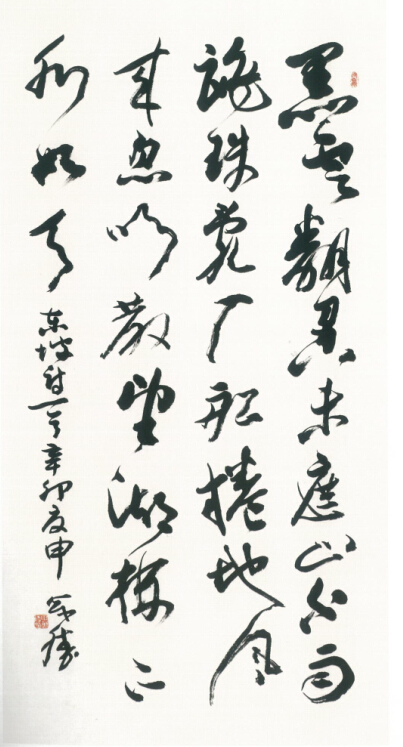 黑雲翻墨未遮山白雨
跳珠亂入船捲地風
来忽吹散望湖樓下
水如天 东坡詩一首辛卯